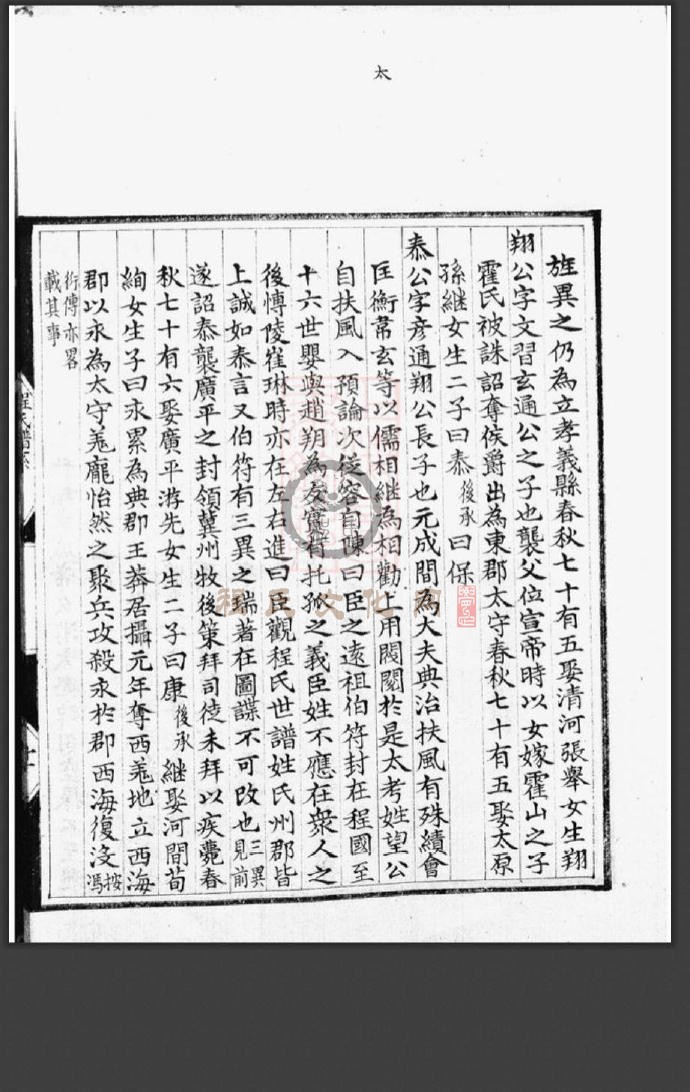 太
旌異之仍為立孝義縣春秋七十有五娶清河張舉女生翔
翔公字文習玄通公之子也襲父位宣帝時以女嫁霍山之子
霍氏被誅詔奪侯爵出為東郡太守春秋七十有五娶太原
孫継女生二子曰泰後承曰保
泰公字彦通翔公長子也元成間為大夫典治扶風有殊績會
匡衡韋玄等以儒相継為相勸上用閥閱於是太考姓望公
自扶風入預論次従容自陳曰臣之遠祖伯符封在程國至
十六世嬰與趙朔為友實有托孤之義臣姓不應在衆人之
後愽陵崔琳時亦在左右進曰臣觀程氏世譜姓氏州郡皆
上誠如泰言又伯符有三異之瑞著在圖諜不可改也三異見前
遂詔泰襲廣平之封領冀州牧後策拜司徒未拜以疾薨春
秋七十有六娶廣平游先女生二子曰康後承継娶河間荀
絢女生子曰永累為典郡王莽居攝元年奪西羗地立西海
郡以永為太守羗龐恬然之聚兵攻殺永於郡西海復沒按馮
衍傳亦畧載其事
程氏譜系
程氏文化網